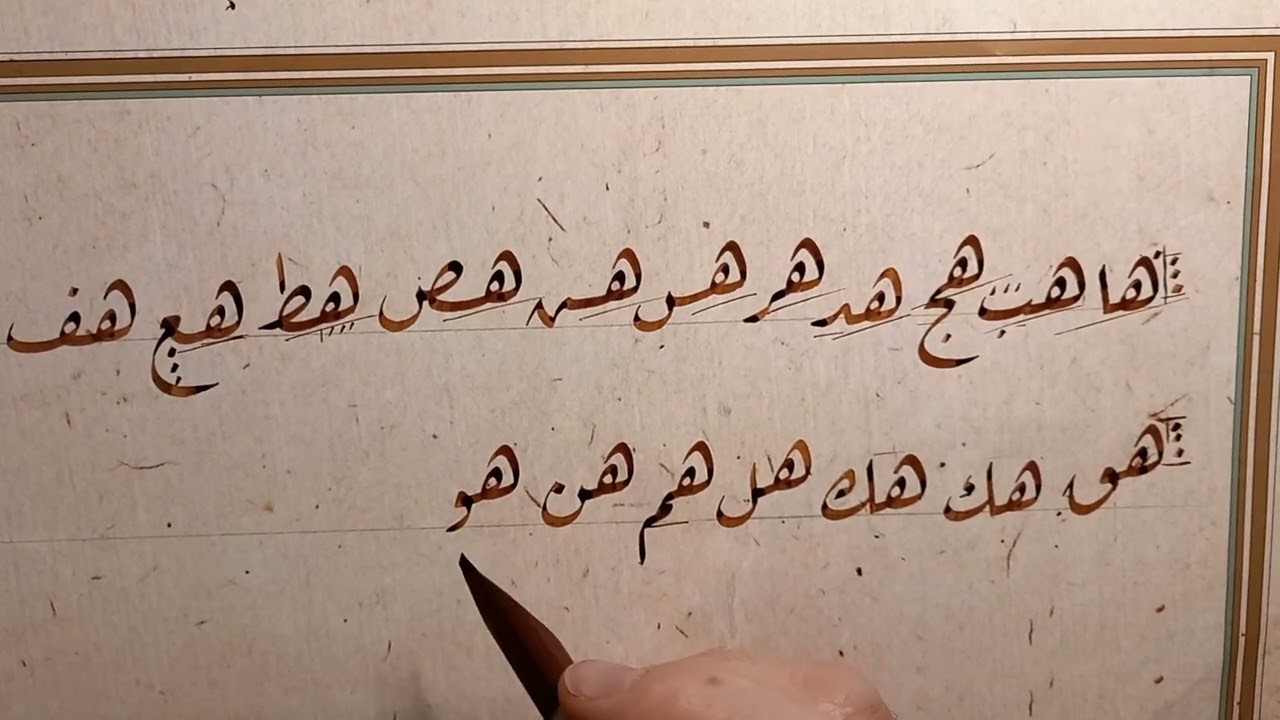 ها هب هج هد هر هس هس هص هط هع هف
هق هك هك هل هم هن هو